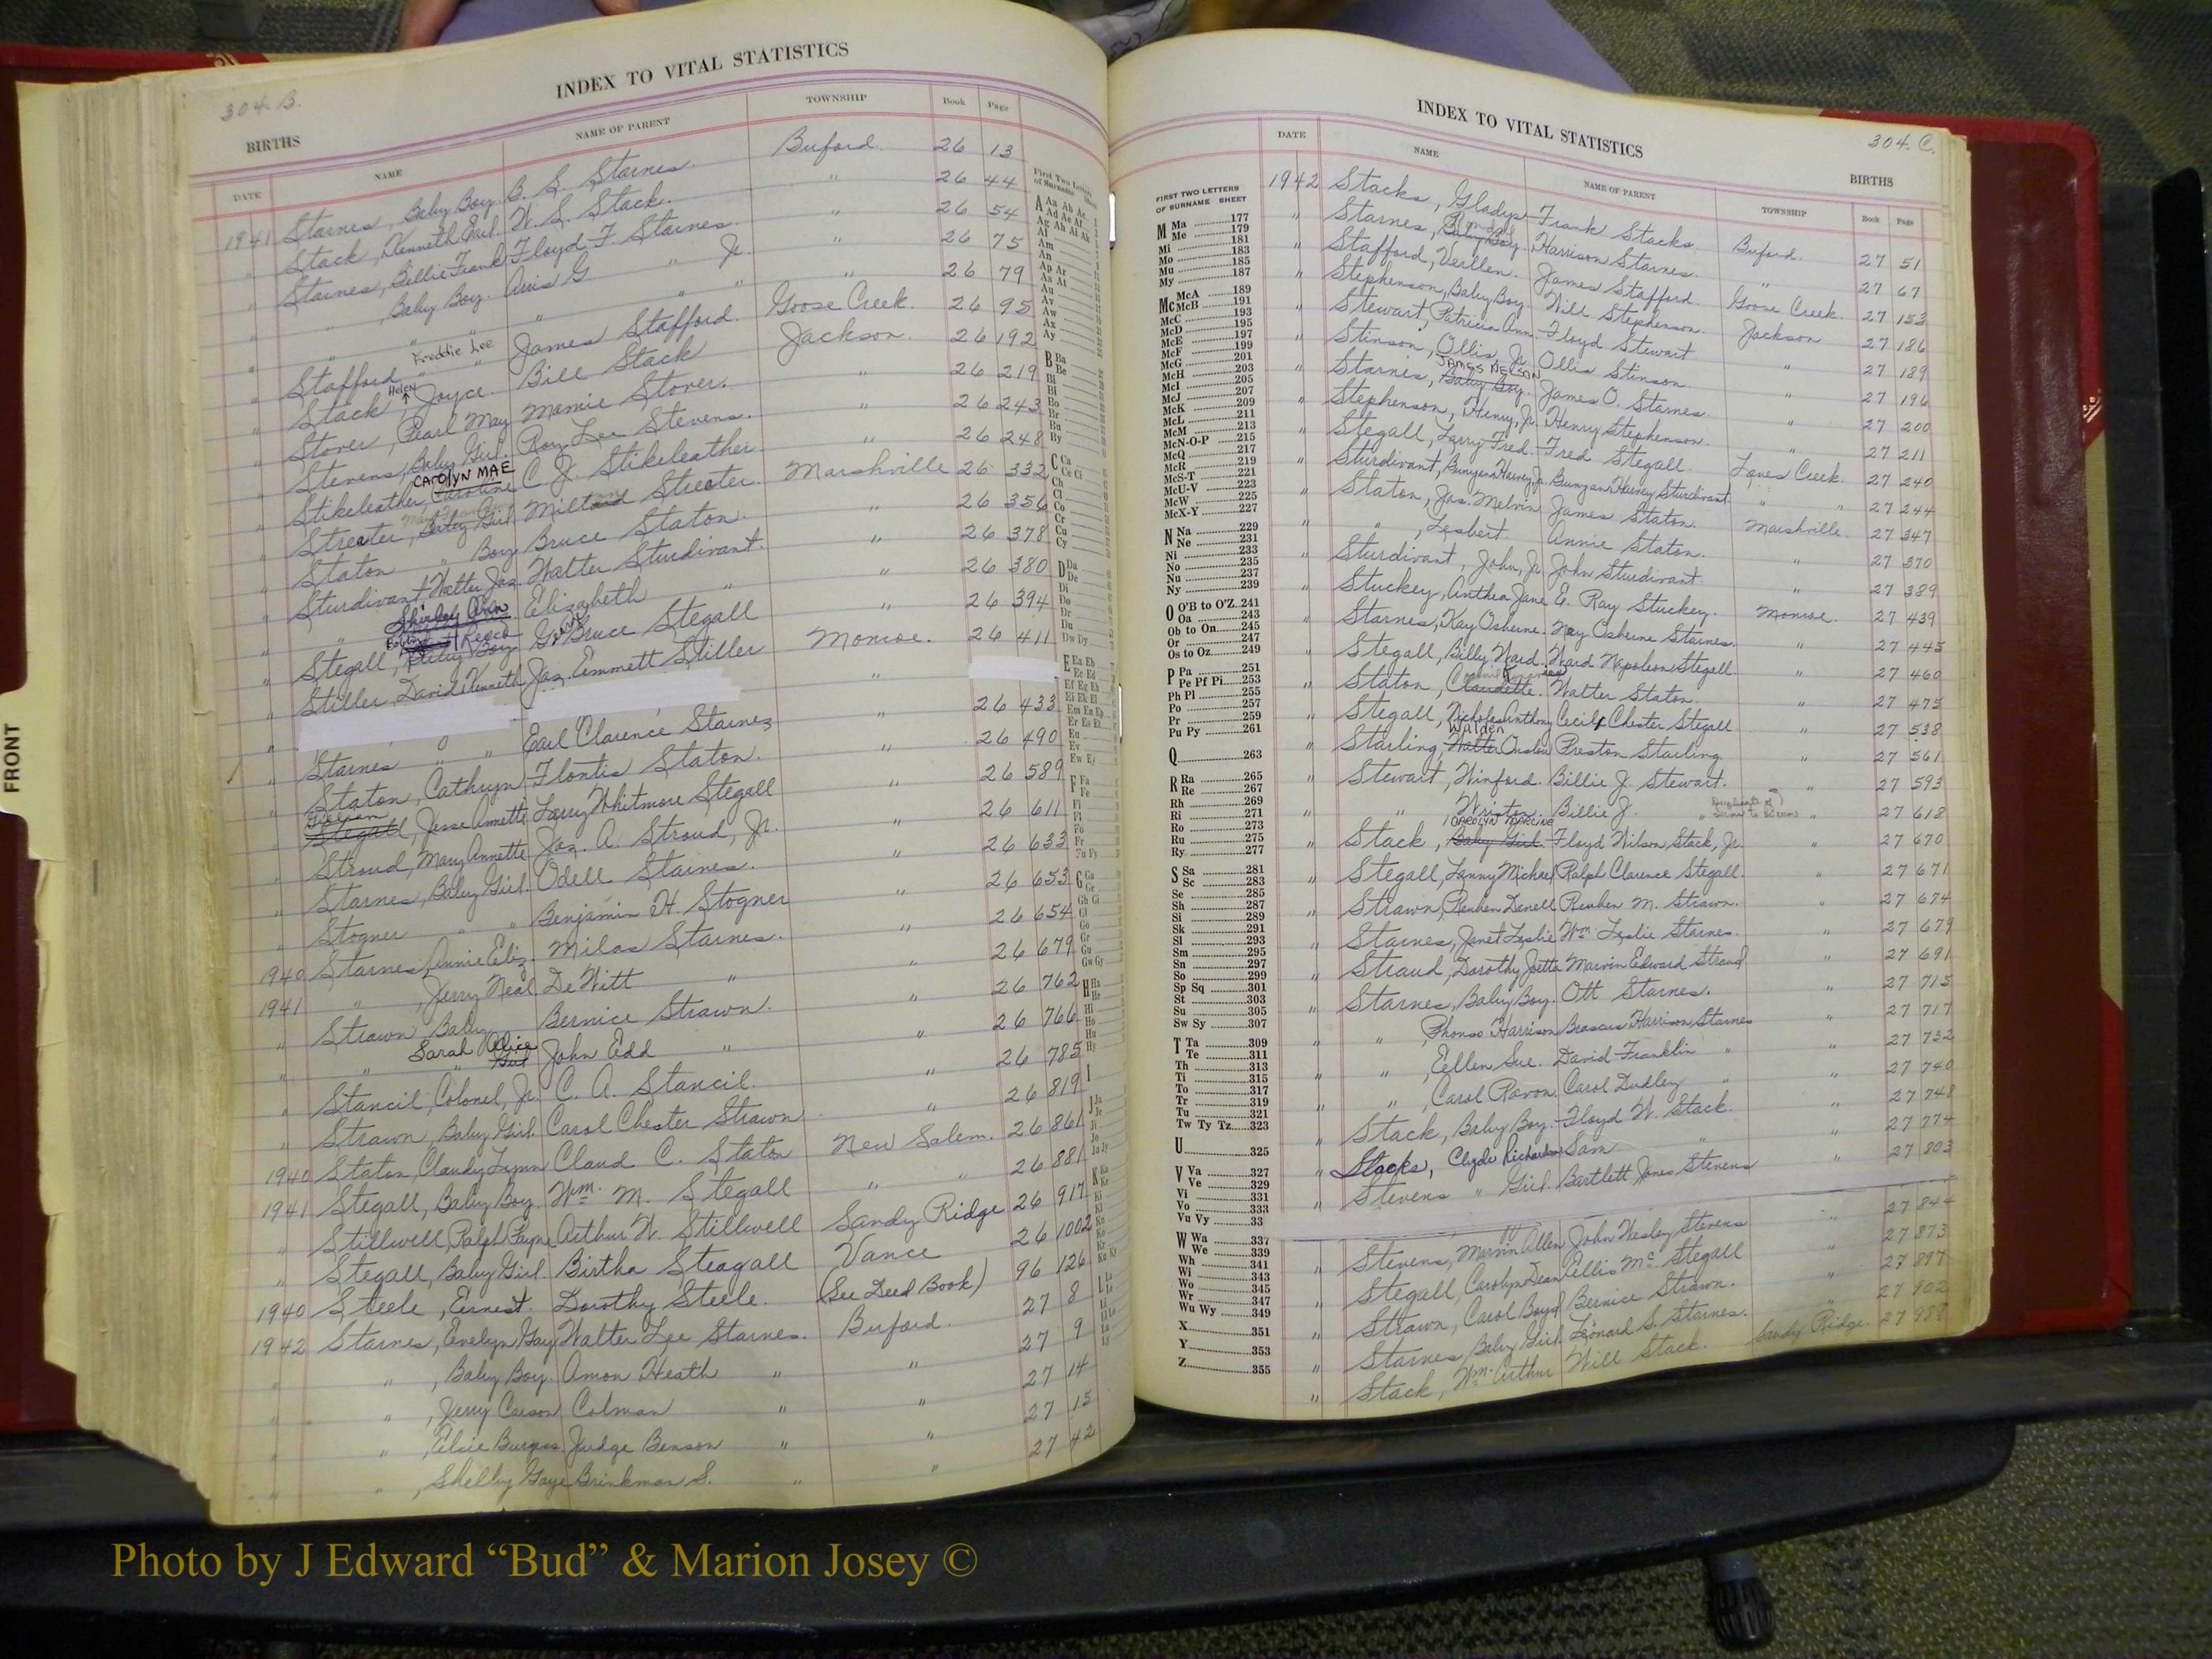 304 B.
INDEX TO VITAL STATISTICS
BIRTHS
DATE NAME NAME OF PARENT TOWNSHIP Book Page
1941 Starnes, Baby Boy. B. L. Starnes. Buford. 26 13
" Stack, Kenneth Earl. W. L. Stack. " 26 44
" Starnes, Billie Frank Floyd F. Starnes " 26 54
" " , Baby Boy. Avis G " Jr. " 26 75
" " " " " " 26 79
Freddie Lee
" Stafford " " James Stafford. Goose Creek. 26 95
Helen
" Stack, Joyce. Bill Stack Jackson. 26 192
" Stover, Pearl May Mamie Stover. " 26 219
" Stevens, Baby Girl. Roy Lee Stevens. " 26 243
CAROLYN MAE
" Stikeleather, Caroline C. J. Stikeleather. " 26 248
" Streater, Baby Girl. Milton Streater. Marshville 26 332
" Staton " Boy Bruce Staton. " 26 356
" Sturdivant, Walter Jas. Walter Sturdivant. " 26 378
Shirley Ann
" " Elizabeth " " 26 380
" Stegall, Baby Boy Bruce Stegall " 26 394
" Stiller David Kenneth Jas. Emmett Stiller Monroe. 26 411
" "
" Starnes " " Earl Clarence Starnes " 26 433
" Staton, Cathryn Flontis Staton. " 26 490
" Stegall, Jesse Annette Larry Whitmore Stegall " 26 589
" Stroud, Mary Annette Jas. A. Stroud, Jr. " 26 611
" Starnes, Baby Girl. Odell Starnes. " 26 633
" Stogner " " Benjamin H. Stogner " 26 653
1940 Starnes, Annie Eliz. Milas Starnes. " 26 654
1941 " , Jerry Neal De Witt " " 26 679
" Strawn, Baby Bernice Strawn. " 26 762
Sarah Alice
" " " Girl John Edd " " 26 766
" Stancil, Colonel, Jr. C. A. Stancil. " 26 785
" Strawn, Baby Girl. Carol Chester Strawn. " 26 819
1940 Staton, Claudy Lynn Claud C. Staton New Salem. 26 861
1941 Stegall, Baby Boy. Wm. M. Stegall " " 26 881
" Stillwell, Ralph Payne Arthur W. Stillwell Sandy Ridge 26 917
" Stegall, Baby Girl. Birtha Steagall Vance 26 1002
1940 Steele, Earnest. Dorothy Steele. (See Deed Book) 96 126
1942 Starnes, Evelyn Gay Walter Lee Starnes. Buford. 27 8
" " , Baby Boy. Amon Heath " " 27 9
" " , Jerry Carson Colman " " 27 14
" " , Elsie Burgess. Judge Benson " " 27 15
" " , Shelby Gaye Brinkman S. " " 27 42
304. C.
INDEX TO VITAL STATISTICS
BIRTHS
DATE NAME NAME OF PARENT TOWNSHIP Book Page
1942 Stacks, Gladys Frank Stacks. Buford. 27 51
" Starnes, Baby Boy. Harrison Starnes. " 27 67
" Stafford, Verllen. James Stafford. Goose Creek. 27 153
" Stephenson, Baby Boy. Will Stephenson. Jackson 27 186
" Stewart, Patricia Ann. Floyd Stewart " 27 189
" Stinson, Ollis, Jr. Ollis Stinson. " 27 196
JAMES NELSON
" Starnes, Baby Boy. James O. Starnes. " 27 200
" Stephenson, Henry, Jr. Henry Stephenson. " 27 211
" Stegall, Larry Fred. Fred Stegall. Lanes Creek. 27 240
" Sturdivant, Bunyan Haney, Jr. Bunyan Haney Sturdivant. " " 27 244
" Staton, Jas. Melvin James Staton. Marshville. 27 347
" " , Lesbert. Annie Staton. " 27 370
" Sturdivant, John, Jr. John Sturdivant. " 27 389
" Stuckey, Anthea Jane E. Ray Stuckey. Monroe. 27 439
" Starnes, Kay Osborne. Ray Osborne Starnes. " 27 445
" Stegall, Billy Ward. Ward Napoleon Stegall. " 27 460
" Staton, Claudette. Walter Staton. " 27 475
" Stegall, Nicholas Anthony Cecil Chester Stegall " 27 538
Walden
" Starling, Walter Onslow Preston Starling " 27 561
" Stewart, Winford. Billie J. Stewart. " 27 593
" " Winston. Billie J. " " 27 618
CAROLYN MARCINE
" Stack, Baby Girl. Floyd Wilson Stack, Jr. " 27 670
" Stegall, Lanny Michael Ralph Clarence Stegall. " 27 671
" Strawn, Reuben Darell Reuben M. Strawn. " 27 674
" Starnes, Janet Leslie Wm. Leslie Starnes. " 27 679
" Straud, Dorothy Joetta Marvin Edward Straud " 27 691
" Starnes, Baby Boy. Ott Starnes. " 27 715
" " , Phonso Harrison Brascus Harrison Starnes " 27 717
" " , Eellen Sue. David Franklin " " 27 732
" " , Carol Ravon. Carol Dudley " " 27 740
" Stack, Baby Boy. Floyd W. Stack. " 27 748
" Stacks, Clyde Richards Sam " " 27 774
" Stevens " Girl. Bartlett Jones Stevens " 27 803
" Stevens, Marvin Allen John Wesley Stevens " 27 844
" Stegall, Carolyn Dean Ellis Mc. Stegall " 27 873
" Strawn, Carol Boyd Bernice Strawn. " 27 897
" Starnes, Baby Girl. Leonard S. Starnes. " 27 902
" Stack, Wm. Arthur Will Stack. Sandy Ridge. 27 987
FIRST TWO LETTERS
OF SURNAME SHEET
M Ma 177
Me 179
Mi 181
Mo 183
Mu 185
My 187
Mc McA 189
McB 191
McC 193
McD 195
McE 197
McF 199
McG 201
McH 203
McI 205
McJ 207
McK 209
McL 211
McM 213
McN-O-P 215
McQ 217
McR 219
McS-T 221
McU-V 223
McW 225
McX-Y 227
N Na 229
Ne 231
Ni 233
No 235
Nu 237
Ny 239
O O'B to O'Z 241
Oa 243
Ob to On 245
Or 247
Os to Oz 249
P Pa 251
Pe Pf Pi 253
Ph Pl 255
Po 257
Pr 259
Pu Py 261
Q 263
R Ra 265
Re 267
Rh 269
Ri 271
Ro 273
Ru 275
Ry 277
S Sa 281
Sc 283
Se 285
Sh 287
Si 289
Sk 291
Sl 293
Sm 295
Sn 297
So 299
Sp Sq 301
St 303
Su 305
Sw Sy 307
T Ta 309
Te 311
Th 313
Ti 315
To 317
Tr 319
Tu 321
Tw Ty Tz 323
U 325
V Va 327
Ve 329
Vi 331
Vo 333
Vu Vy 33
W Wa 337
We 339
Wh 341
Wi 343
Wo 345
Wr 347
Wu Wy 349
X 351
Y 353
Z 355
FRONT
Photo by J Edward “Bud” & Marion Josey ©